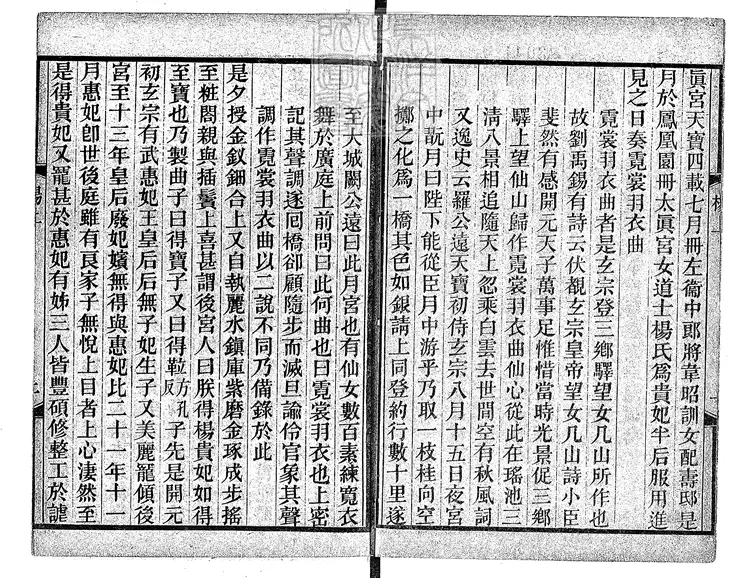 眞宮天寶四載七月冊左衞中郎將韋昭訓女配壽邸是
月於鳳凰園冊太眞宮女道士楊氏爲貴妃半后服用進
見之日奏霓裳羽衣曲
霓裳羽衣曲者是玄宗登三鄉驛望女几山所作也
故劉禹錫有詩云伏覩玄宗皇帝望女几山詩小臣
斐然有感開元天子萬事足惟惜當時光景促三鄉
驛上望仙山歸作霓裳羽衣曲仙心從此在瑤池三
淸八景相追隨天上忽乘白雲去世間空有秋風詞
又逸史云羅公遠天寶初侍玄宗八月十五日夜宮
中翫月曰陛下能從臣月中游乎乃取一枝桂向空
擲之化爲一橋其色如銀請上同登約行數十里遂
至大城闕公遠曰此月宮也有仙女數百素練寬衣
舞於廣庭上前問曰此何曲也曰霓裳羽衣也上密
記其聲調遂囘橋卻顧隨步而滅旦諭伶官象其聲
調作霓裳羽衣曲以二說不同乃備錄於此
是夕授金釵鈿合上又自執麗水鎭庫紫磨金琢成步搖
至粧閣親與插鬢上喜甚謂後宮人曰朕得楊貴妃如得
至寶也乃製曲子曰得寶子又曰得鞛方孔反子先是開元
初玄宗有武惠妃王皇后后無子妃生子又美麗寵傾後
宮至十三年皇后廢妃嬪無得與惠妃比二十一年十一
月惠妃卽世後庭雖有良家子無悅上目者上心淒然至
是得貴妃又寵甚於惠妃有姊三人皆豐碩修整工於謔